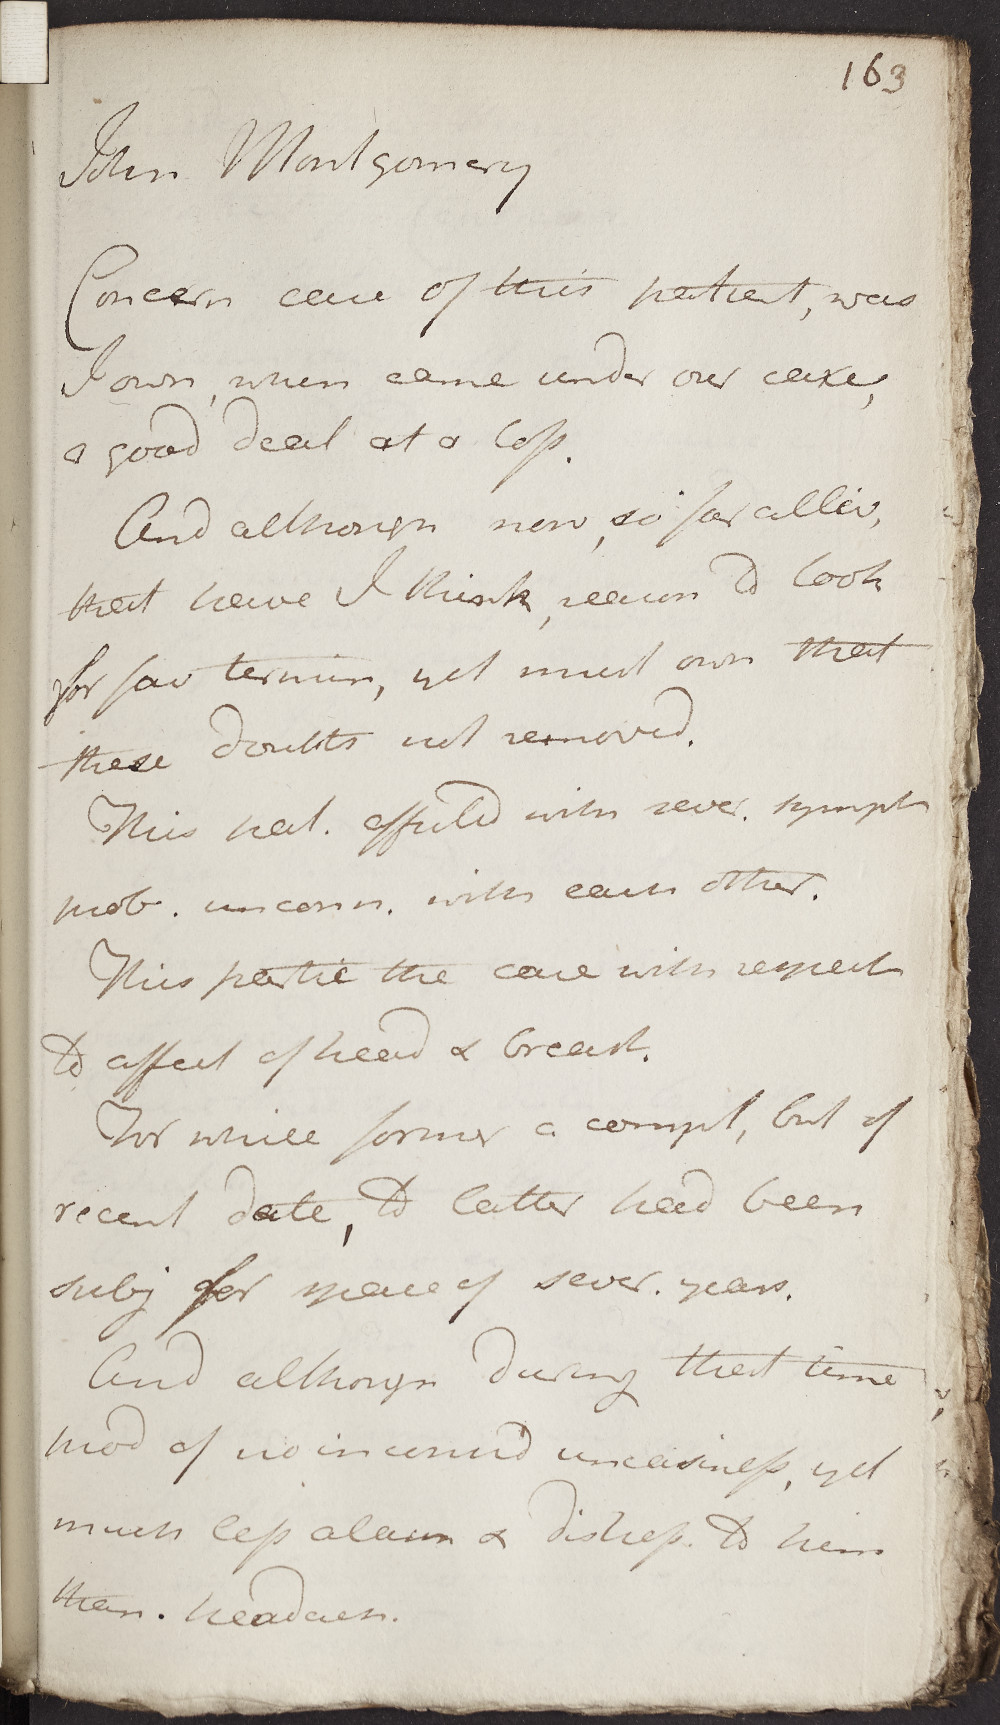 163
John Montgomery
Concern case of this patient, was
I own, when came under our care,
a good deal at a loss.
And although now, so far allev,
that have I think, reason to look
for fav termin, yet must own that
these doubts not removed.
This pat. afflict'd with sever. sympt
prob. unconn. with each other.
This partic the case with respect
to affect of head & breast.
For while former a compl, but of
recent date, to latter had been
subj for space of sever. years.
And although during that time
prod of no inconsid uneasiness, yet
much less alarm & distress. to him
than. headach.